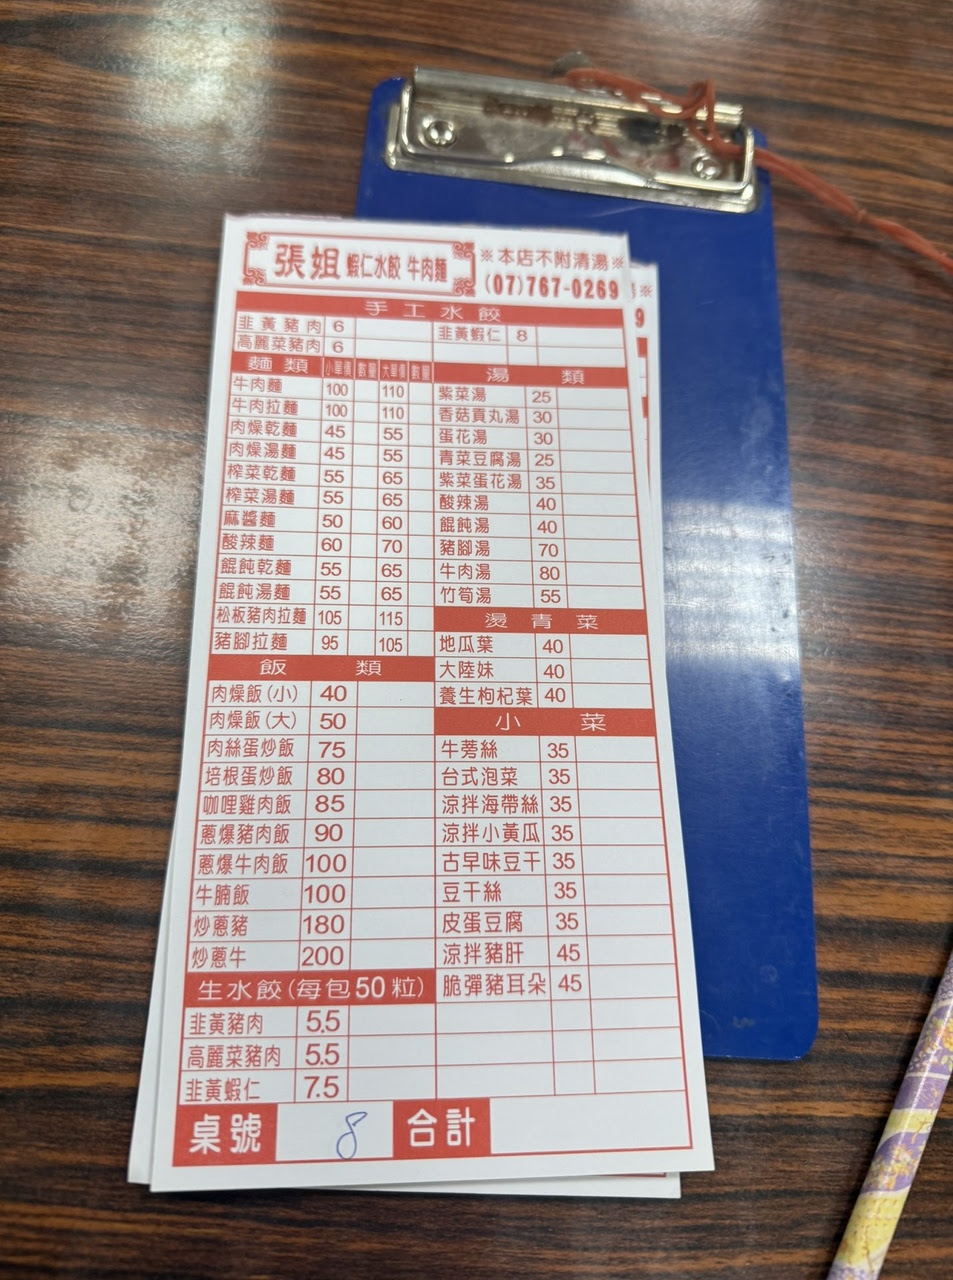 張姐 蝦仁水餃 牛肉麵
※本店不附清湯※
(07)767-0269
手工水餃
韭黃豬肉 6 韭黃蝦仁 8
高麗菜豬肉 6
麵類 小單價 數量 大單價 數量
牛肉麵 100 110
牛肉拉麵 100 110
肉燥乾麵 45 55
肉燥湯麵 45 55
榨菜乾麵 55 65
榨菜湯麵 55 65
麻醬麵 50 60
酸辣麵 60 70
餛飩乾麵 55 65
餛飩湯麵 55 65
松板豬肉拉麵 105 115
豬腳拉麵 95 105
飯類
肉燥飯(小) 40
肉燥飯(大) 50
肉絲蛋炒飯 75
培根蛋炒飯 80
咖哩雞肉飯 85
蔥爆豬肉飯 90
蔥爆牛肉飯 100
牛腩飯 100
炒蔥豬 180
炒蔥牛 200
生水餃(每包50粒)
韭黃豬肉 5.5
高麗菜豬肉 5.5
韭黃蝦仁 7.5
湯類
紫菜湯 25
香菇貢丸湯 30
蛋花湯 30
青菜豆腐湯 25
紫菜蛋花湯 35
酸辣湯 40
餛飩湯 40
豬腳湯 70
牛肉湯 80
竹筍湯 55
燙青菜
地瓜葉 40
大陸妹 40
養生枸杞葉 40
小菜
牛蒡絲 35
台式泡菜 35
涼拌海帶絲 35
涼拌小黃瓜 35
古早味豆干 35
豆干絲 35
皮蛋豆腐 35
涼拌豬肝 45
脆彈豬耳朵 45
桌號 8 合計